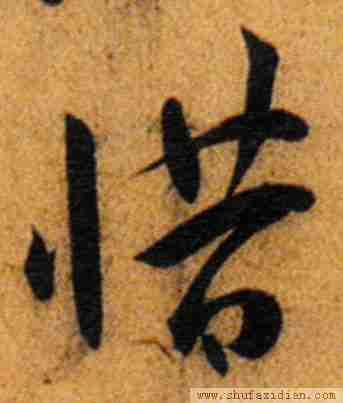 惜
www.shufazidian.com